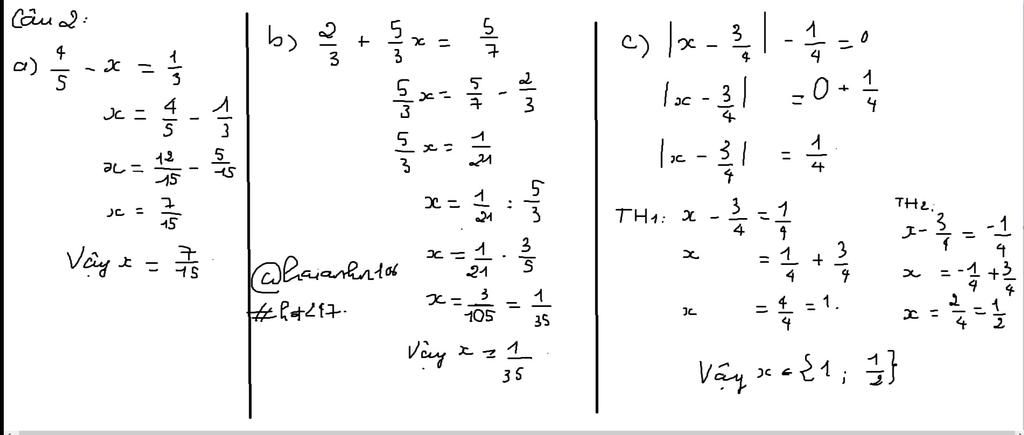 Câu 2:
a) 4/5 - x = 1/3
x = 4/5 - 1/3
x = 12/15 - 5/15
x = 7/15
Vậy x = 7/15
b) 2/3 + 5/3 x = 5/7
5/3 x = 5/7 - 2/3
5/3 x = 1/21
x = 1/21 : 5/3
x = 1/21 . 3/5
x = 3/105 = 1/35
Vậy x = 1/35
@haianhn106
c) |x - 3/4| - 1/4 = 0
|x - 3/4| = 0 + 1/4
|x - 3/4| = 1/4
TH1: x - 3/4 = 1/4
x = 1/4 + 3/4
x = 4/4 = 1.
TH2:
x - 3/4 = -1/4
x = -1/4 + 3/4
x = 2/4 = 1/2
Vậy x ∈ {1; 1/2}